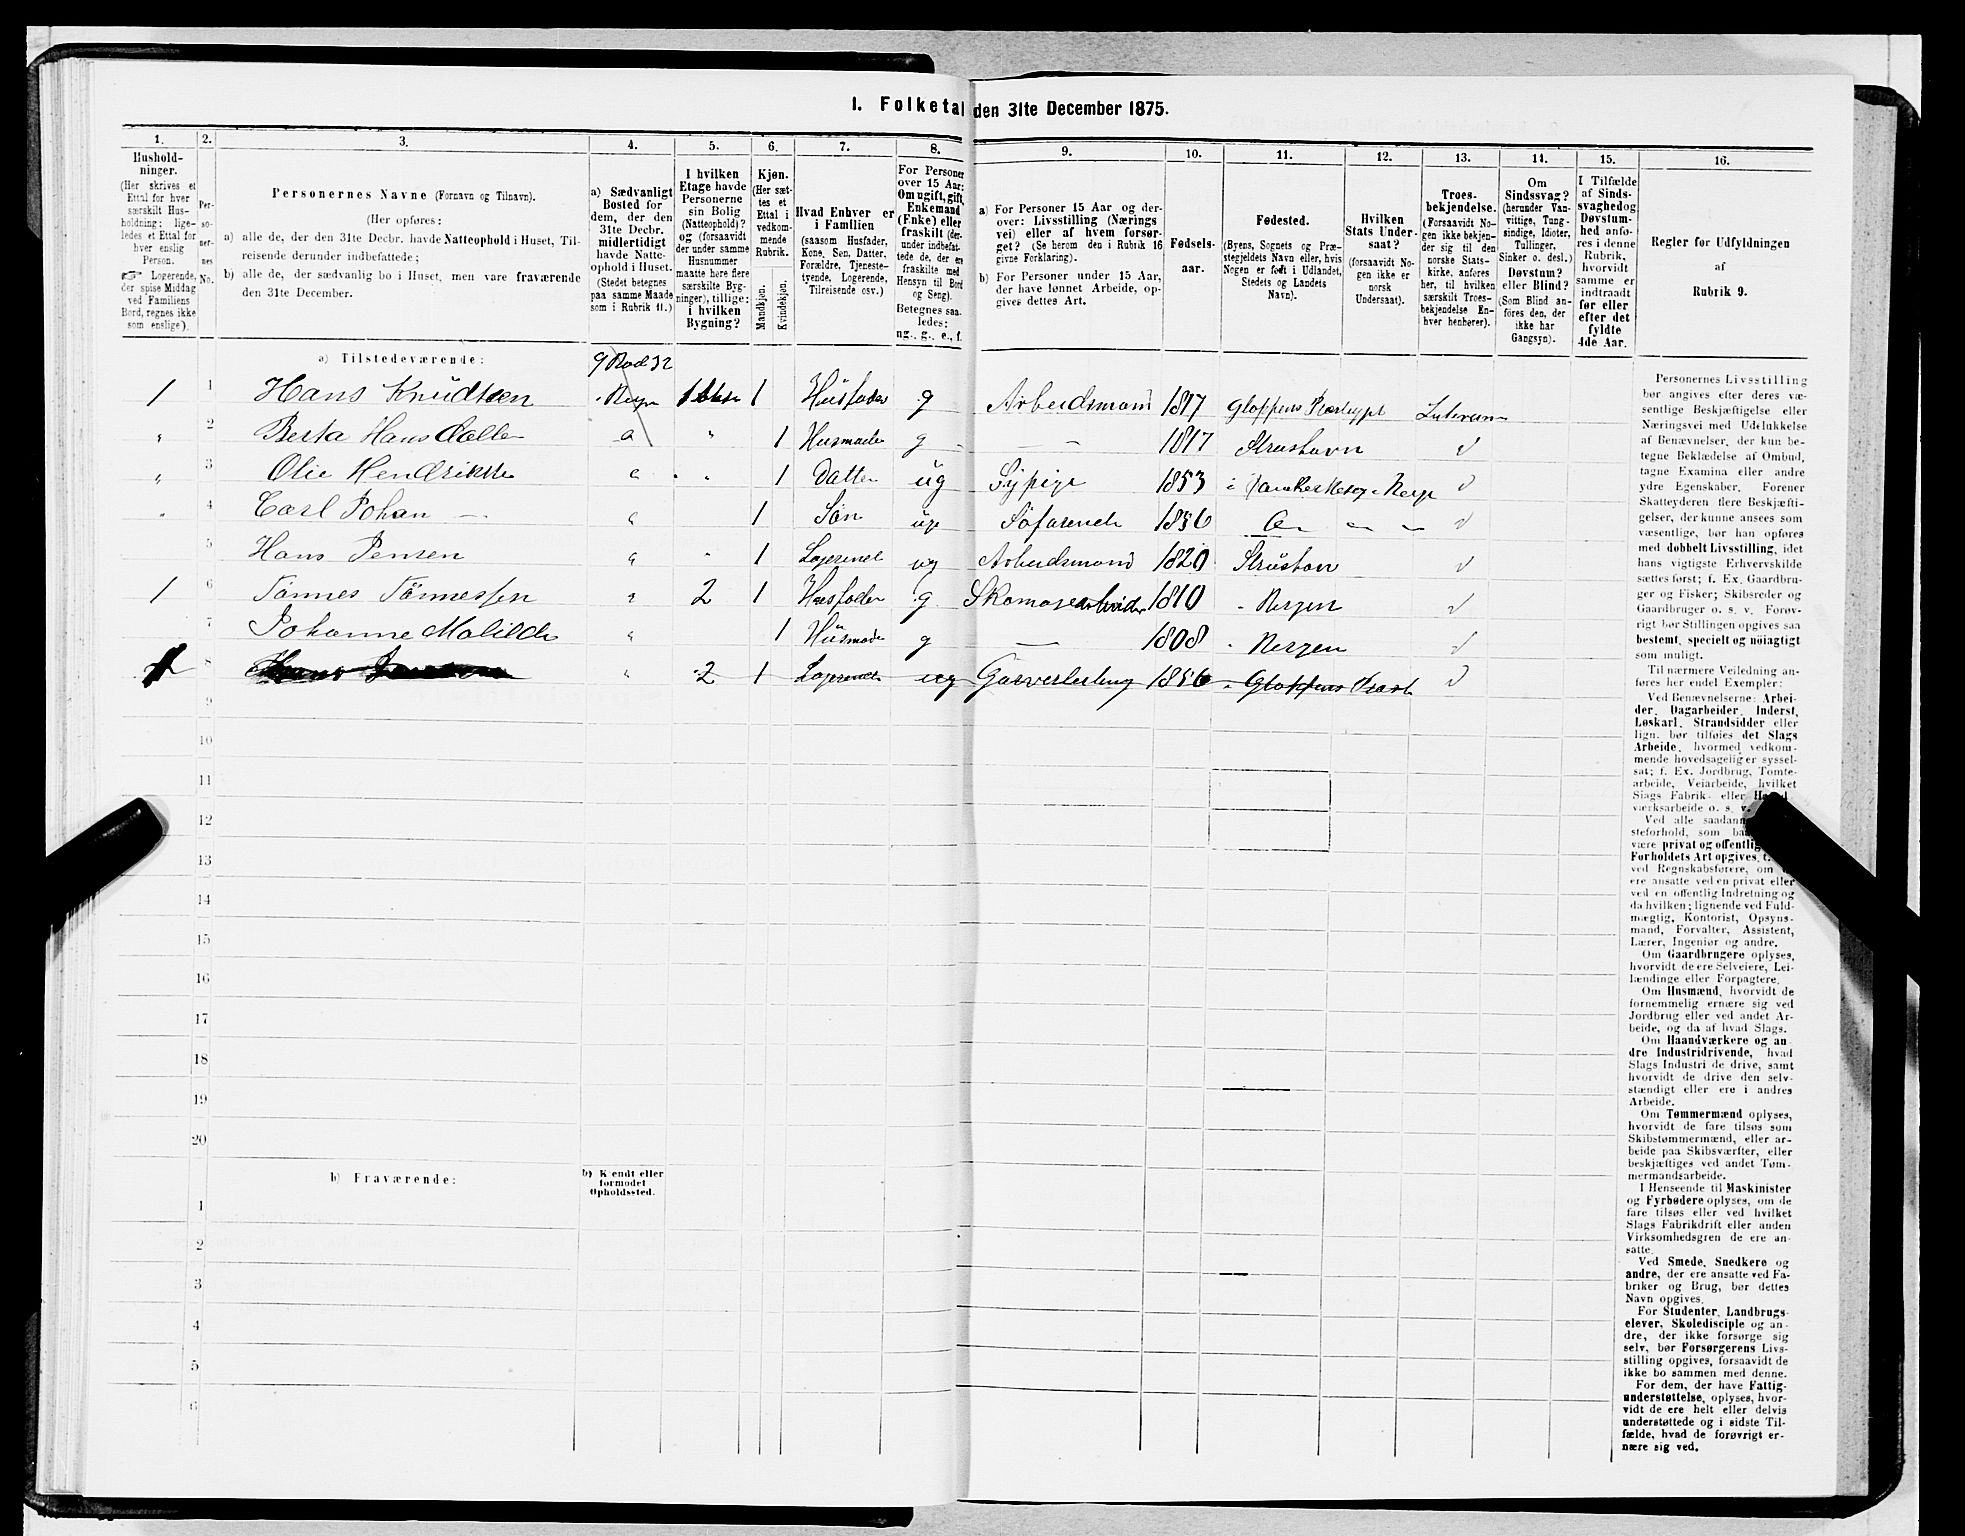 I. Folketal den 31te December 1875.
1. 2. 3. 4. 5. 6. 7. 8. 9. 10. 11. 12. 13. 14. 15. 16.
Hushold-
ninger.
(Her skrives et
Ettal for hver
særskilt Hus-
holdning; lige-
ledes et Ettal for
hver enslig
Person.
☞ Logerende,
der spise Middag
ved Familiens
Bord, regnes ikke
som enslige).
Per-
so-
ner-
nes
No.
Personernes Navne (Fornavn og Tilnavn).
(Her opføres:
a) alle de, der den 31te Decbr. havde Natteophold i Huset, Til-
reisende derunder indbefattede;
b) alle de, der sædvanlig bo i Huset, men vare fraværende
den 31te December.
a) Sædvanligt
Bosted for
dem, der den
31te Decbr.
midlertidigt
havde Natte-
ophold i Huset.
(Stedet betegnes
paa samme Maade
som i Rubrik 11.)
I hvilken
Etage havde
Personerne
sin Bolig
(Natteophold)?
og (forsaavidt
der under samme
Husnummer
maatte høre flere
særskilte Byg-
ninger), tillige:
i hvilken
Bygning?
Kjøn.
(Her sæt-
tes et
Ettal i
vedkom-
mende
Rubrik.
Mandkjøn.
Kvindekjøn.
Hvad Enhver er
i Familien
(saasom Husfader,
Kone, Søn, Datter,
Forældre, Tjeneste-
tyende, Logerende,
Tilreisende osv.)
For Personer
over 15 Aar:
Om ugift, gift,
Enkemand
(Enke) eller
fraskilt (der-
under indbefat-
tede de, der ere
fraskilte med
Hensyn til Bord
og Seng).
Betegnes saa-
ledes:
ug., g., e., f.
a) For Personer 15 Aar og der-
over: Livsstilling (Nærings
vei) eller af hvem forsør-
get? (Se herom den i Rubrik 16
givne Forklaring).
b) For Personer under 15 Aar,
der have lønnet Arbeide, op-
gives dettes Art.
Fødsels-
aar.
Fødested.
(Byens, Sognets og Præ-
stegjeldets Navn eller, hvis
Nogen er født i Udlandet,
Stedets og Landets
Navn).
Hvilken
Stats Under-
saat?
(forsaavidt No-
gen ikke er
norsk
Undersaat).
Troes-
bekjendelse.
(Forsaavidt No-
gen ikke bekjen-
der sig til den
norske Stats-
kirke, anføres
her, til hvilken
særskilt Troes-
bekjendelse En-
hver henhører).
Om
Sindssvag?
(herunder Van-
vittige, Tung-
sindige, Idioter,
Tullinger,
Sinker o. desl.)
Døvstum?
eller Blind?
(Som Blind an-
føres den, der
ikke har
Gangsyn).
I Tilfælde
af Sinds-
svaghed og
Døvstum-
hed anfø-
res i denne
Rubrik,
hvorvidt
samme er
indtraadt
før eller
efter det
fyldte
4de Aar.
Regler for Udfyldningen
af
Rubrik 9.
a) Tilstedeværende:
9 Rod 32
1 1 Hans Knudtsen 1 Husfader g Arbeidsmand 1817 Gloppens
" 2 Berta Hans Datter " 1 Husmoder g — 1817 ✓
" 3 Olie Hendrikke " 1 Datter ug Sypige 1853 ✓
" 4 Carl Johan — " 1 Søn ug Søfarende 1856 ✓
5 Hans Jensen " " 1 Logerende ug Arbeidsmand 1820 ✓
1 6 Tønnes Tønnessen " 2 1 Husfader g 1810 Bergen ✓
7 Johanne Matilde " 1 Husmoder g — 1808 Bergen ✓
8 " 2 1 Logerende ug 1856 Gloppens Præst ✓
9
10
11
12
13
14
15
16
17
18
19
20
b) Fraværende:
b) Kjendt eller
formodet
Opholdssted.
1
2
3
4
5
6
Personernes Livsstilling
bør angives efter deres væ-
sentlige Beskjæftigelse eller
Næringsvei med Udelukkelse
af Benævnelser, der kun be-
tegne Beklædelse af Ombud,
tagne Examina eller andre
ydre Egenskaber. Forener
Skatteyderen flere Beskjæfti-
gelser, der kunne ansees som
væsentlige, bør han opføres
med dobbelt Livsstilling, idet
hans vigtigste Erhvervskilde
sættes først; f. Ex. Gaardbru-
ger og Fisker; Skibsreder og
Gaardbruger o. s. v. Forøv-
rigt bør Stillingen opgives saa
bestemt, specielt og nøiagtigt
som muligt.
Til nærmere Veiledning an-
føres her endel Exempler:
Ved Benævnelserne: Arbei-
der, Dagarbeider, Inderst,
Løskarl, Strandsidder eller
lign. bør tilføies det Slags
Arbeide, hvormed vedkom-
mende hovedsagelig er syssel-
sat; f. Ex. Jordbrug, Tomte-
arbeide, Veiarbeide, hvilket
Slags Fabrik- eller
værksarbeide o. s. v.
Ved alle
steforhold, som
være privat og offentlig
Forholdets Art opgives,
ved Regnskabsførere, om
ere ansatte ved en privat eller
ved en offentlig Indretning og
da hvilken; lignende ved Fuld-
mægtig, Kontorist, Opsyns-
mand, Forvalter, Assistent,
Lærer, Ingeniør og andre.
Om Gaardbrugere oplyses,
hvorvidt de ere Selveiere, Lei-
lændinge eller Forpagtere.
Om Husmænd, hvorvidt de
fornemmelig ernære sig ved
Jordbrug eller ved andet Ar-
beide, og da af hvad Slags.
Om Haandværkere og an
dre Industridrivende, hvad
Slags Industri de drive, samt
hvorvidt de drive den selv-
stændigt eller ere i andres
Arbeide.
Om Tømmermænd oplyses,
hvorvidt de fare tilsøs som
Skibstømmermænd, eller ar-
beide paa Skibsværfter, eller
beskjæftiges ved andet Tøm-
mermandsarbeide.
I Henseende til Maskinister
og Fyrbødere oplyses, om de
fare tilsøs eller ved hvilket
Slags Fabrikdrift eller anden
Virksomhedsgren de ere an-
satte.
Ved Smede, Snedkere og
andre, der ere ansatte ved Fa-
briker og Brug, bør dettes
Navn opgives.
For Studenter, Landbrugs-
elever, Skoledisciple og an-
dre, der ikke forsørge sig
selv, bør Forsørgerens Livs-
stilling opgives, forsaavidt de
ikke bo sammen med denne.
For dem, der have Fattig-
understøttelse, oplyses, hvor-
vidt de ere helt eller delvis
understøttede og i sidste Til-
fælde, hvad de forøvrigt er-
nære sig ved.